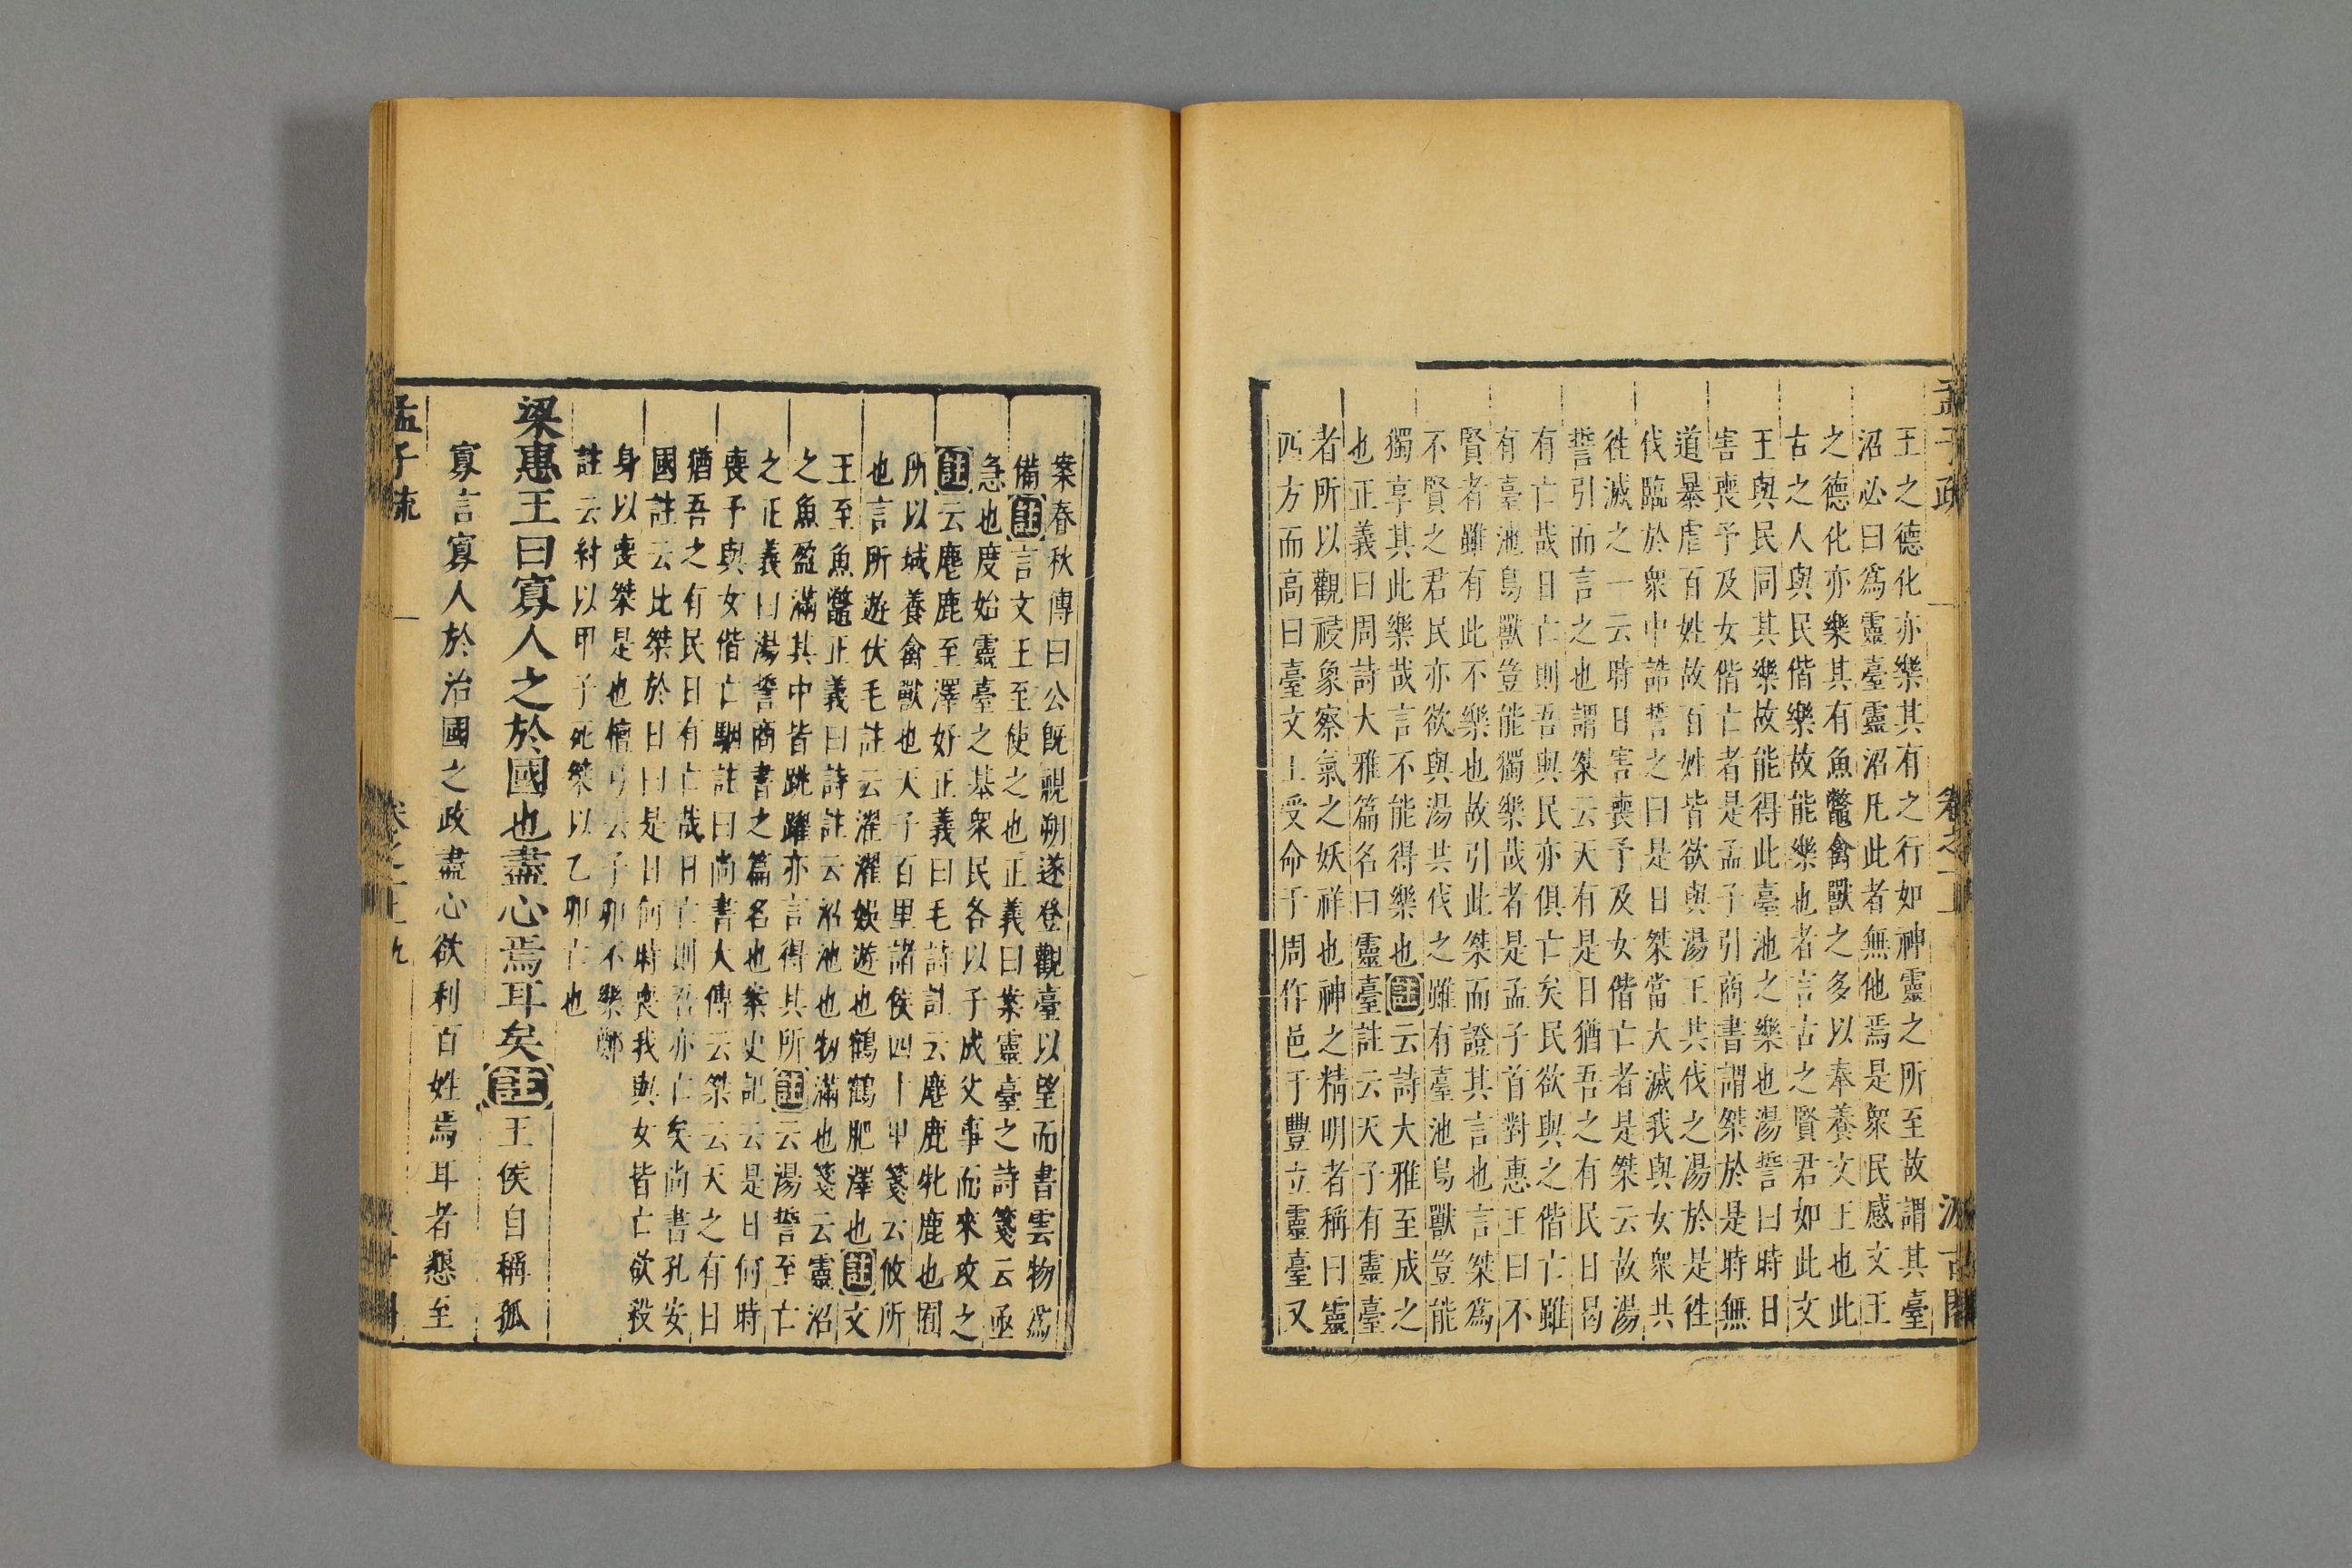 孟子疏 卷之一上 汲古閣
王之德化亦樂其有之行如神靈之所至故謂其臺
沼必曰爲靈臺靈沼凡此者無他焉是衆民感文王
之德化亦樂其有魚鼈禽獸之多以奉養文王也此
古之人與民偕樂故能樂也者言古之賢君如此文
王與民同其樂故能得此臺池之樂也湯誓曰時日
害喪予及女偕亡者是孟子引商書謂桀於是時無
道暴虐百姓故百姓皆欲與湯王共伐之湯於是徃
伐臨於衆中誥誓之曰是日桀當大滅我與女衆共
徃滅之一云時日害喪予及女偕亡者是桀云故湯
誓引而言之也謂桀云天有是日猶吾之有民日曷
有亡哉日亡則吾與民亦俱亡矣民欲與之偕亡雖
有臺池鳥獸豈能獨樂哉者是孟子首對惠王曰不
賢者雖有此不樂也故引此桀而證其言也言桀爲
不賢之君民亦欲與湯共伐之雖有臺池鳥獸豈能
獨享其此樂哉言不能得樂也註云詩大雅至成之
也正義曰周詩大雅篇名曰靈臺註云天子有靈臺
者所以觀祲象察氣之妖祥也神之精明者稱曰靈
四方而高曰臺文王受命于周作邑于豐立靈臺又
案春秋傳曰公旣視朔遂登觀臺以望而書雲物爲
備註言文王至使之也正義曰案靈臺之詩箋云亟
急也度始靈臺之基衆民各以子成父事而來攻之
註云麀鹿至澤好正義曰毛詩註云麀鹿牝鹿也囿
所以域養禽獸也天子百里諸侯四十里箋云攸所
也言所遊伏毛註云濯濯娛遊也鶴鶴肥澤也註文
王至魚鼈正義曰詩註云沼池也牣滿也箋云靈沼
之魚盈滿其中皆跳躍亦言得其所註云湯誓至亡
之正義曰湯誓商書之篇名也案史記云是日何時
喪予與女偕亡駰註曰尚書大傳云桀云天之有日
猶吾之有民日有亡哉日亡則吾亦亡矣尚書孔安
國註云比桀於日曰是日何時喪我與女皆亡欲殺
身以喪桀是也檀弓云子卯不樂鄭
註云紂以甲子死桀以乙卯亡也
梁惠王曰寡人之於國也盡心焉耳矣註王侯自稱孤
寡言寡人於治國之政盡心欲利百姓焉耳者懇至
孟子疏 卷之一上 九